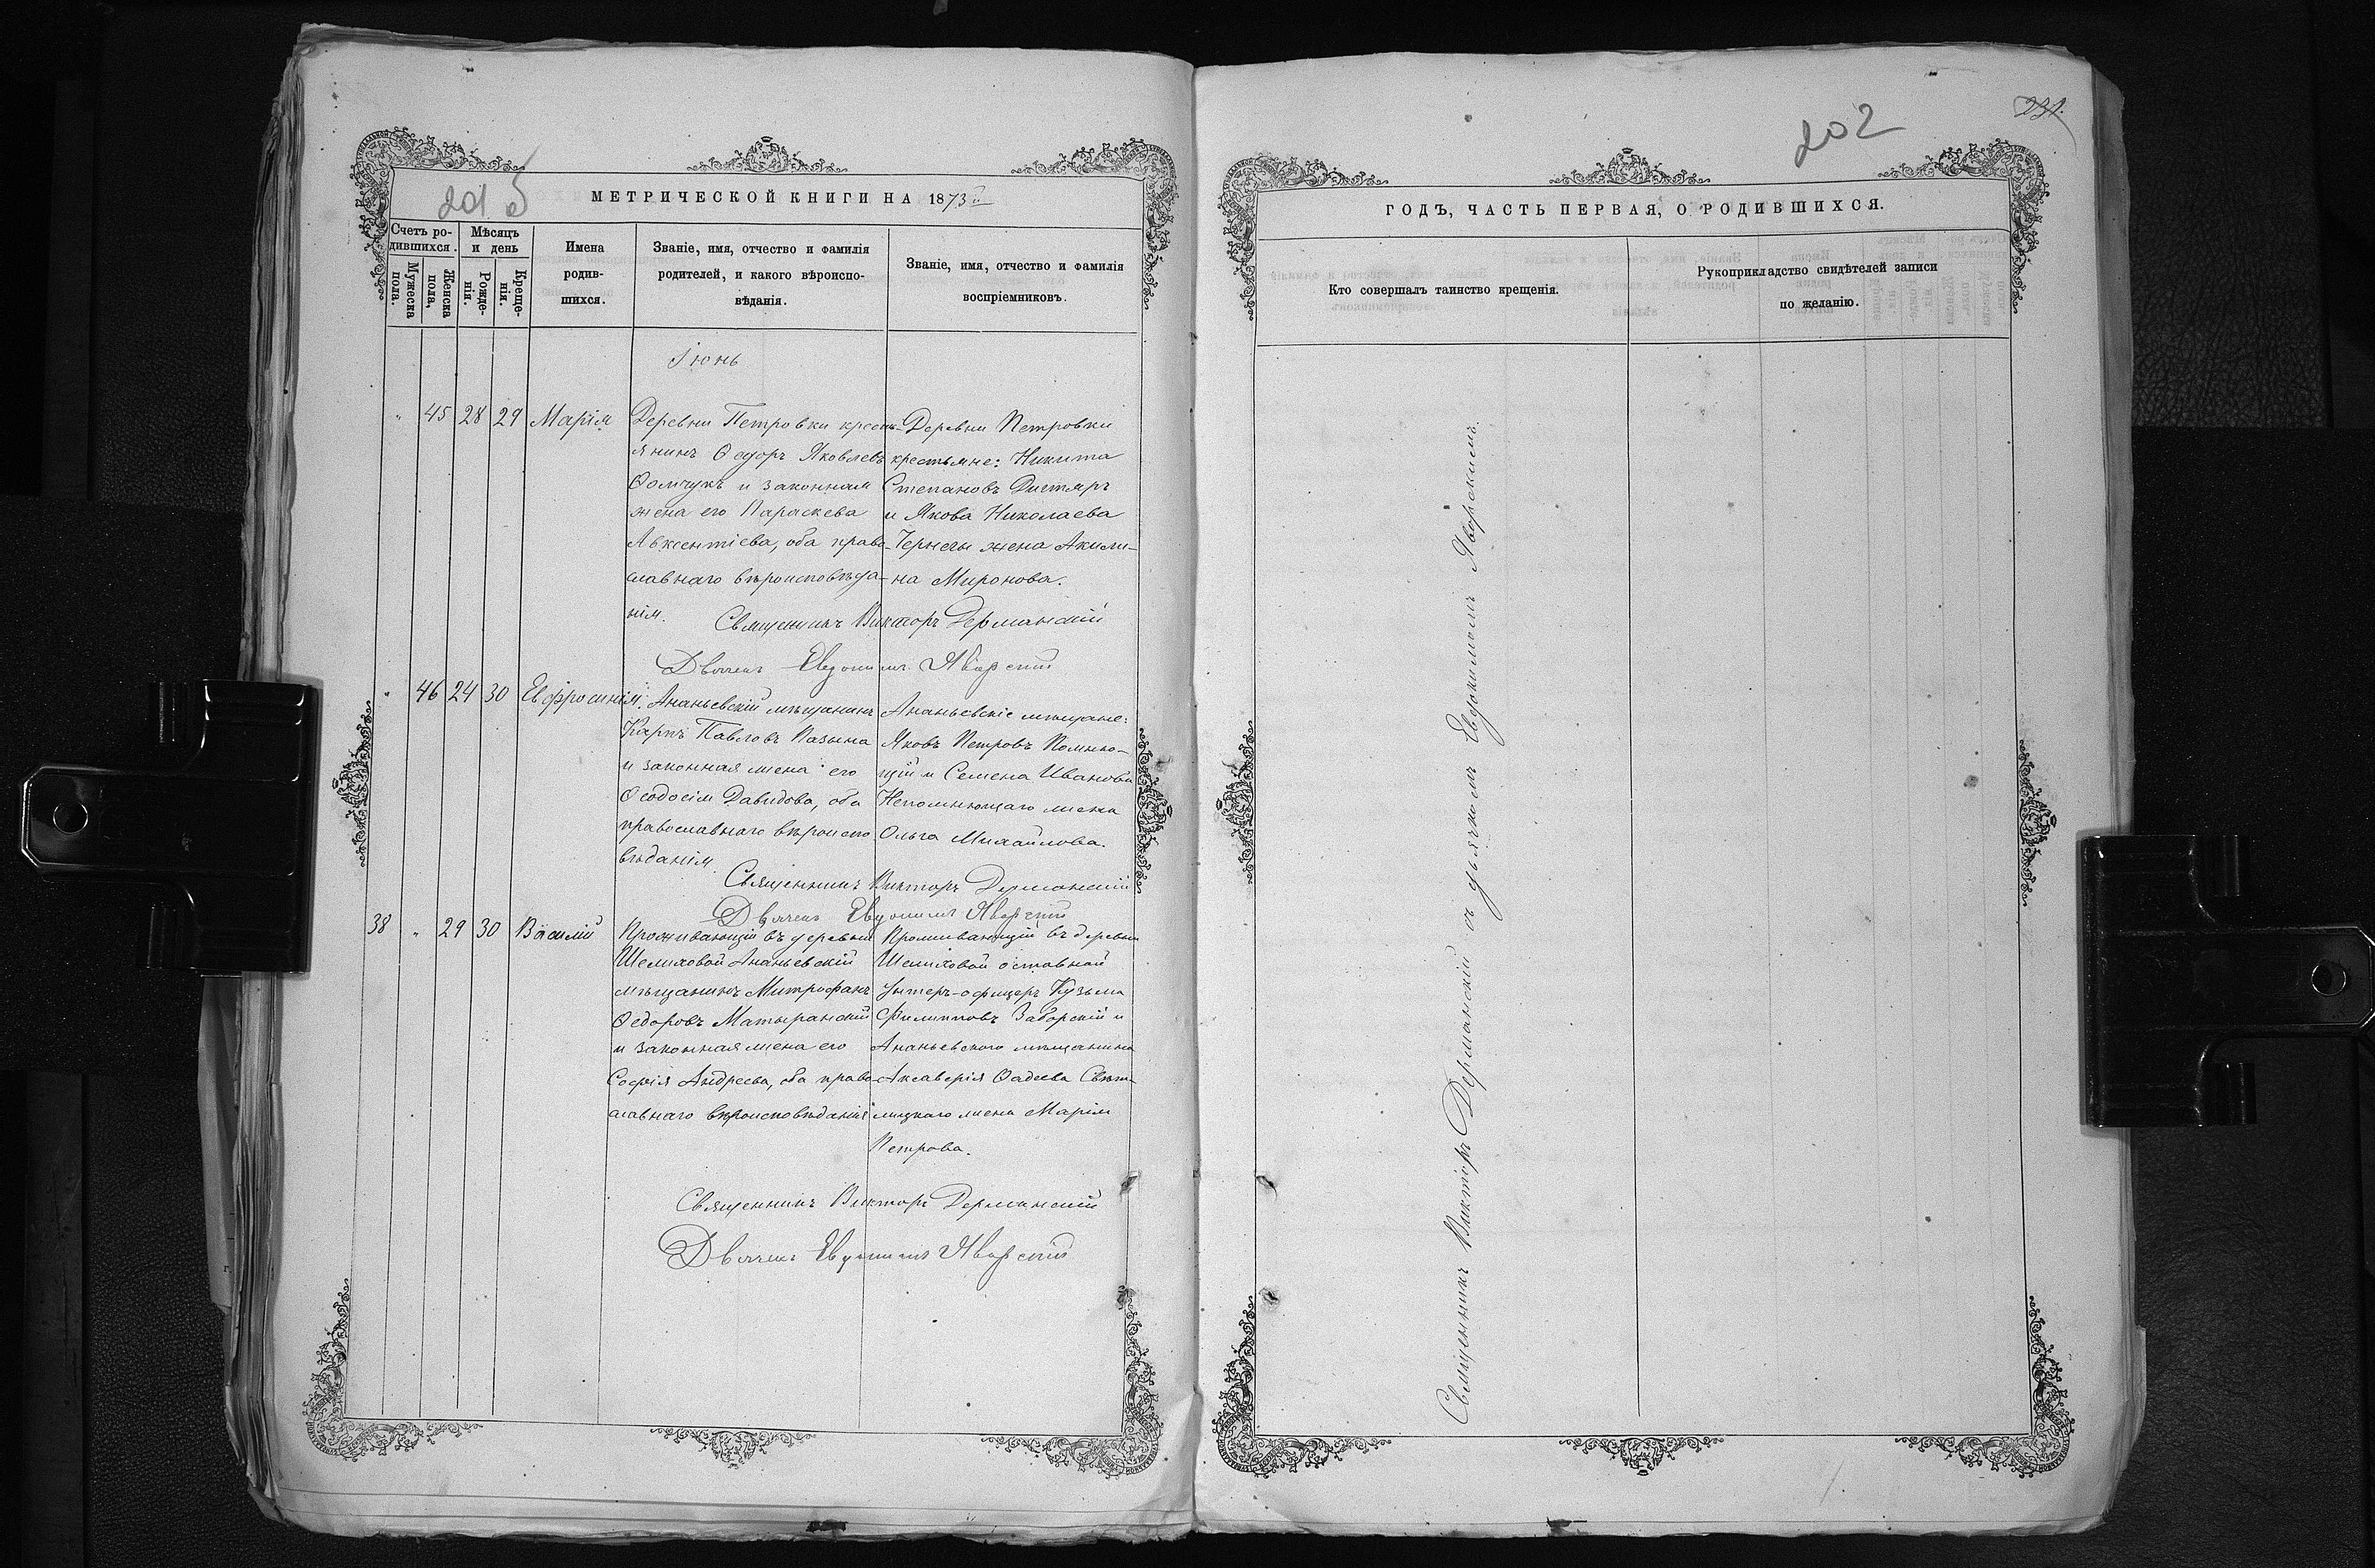 201 б
МЕТРИЧЕСКОЙ КНИГИ НА 1873й
Счетъ ро-
дившихся.
Мужеска
пола.
Женска
пола,
Мѣсяцъ
и день
Рожде-
нія.
Креще-
нія.
Имена
родив-
шихся.
Званіе, имя, отчество и фамилія
родителей, и какого вѣроиспо-
вѣданія.
Званіе, имя, отчество и фамилія
воспріемниковъ.
Іюнь
" 45 28 29 Марія
Деревни Петровки кресть-
янинъ Ѳедоръ Яковлевъ
Ѳомчукъ и законная
жена его Параскева
Авксентіева, оба право-
славнаго вѣроисповѣда-
нія.
Деревни Петровки
крестьяне: Никита
Степановъ Дигтяръ
и Якова Николаева
жена Акили-
на Миронова.
Священникъ Викторъ Дерманскій
Дьячекъ Евдокимъ Яворскій
" 46 24 30 Евфросинія.
Ананьевскій мѣщанинъ
Карпъ Павловъ Пазына
и законная жена его
Ѳеодосія Давидова, оба
православнаго вѣроиспо-
вѣданія
Ананьевскіе мѣщане:
Яковъ Петровъ Помню-
щій и Семена Иванова
Непомнющаго жена
Ольга Михайлова.
Священникъ Викторъ Дерманскій
Дьячекъ Евдокимъ Яворскій
38 " 29 30 Василій
Проживающій въ деревни
Шелиховой Ананьевскій
мѣщанинъ Митрофанъ
Ѳедоровъ Матыранскій
и законная жена его
Софія Андреева, оба право-
славнаго вѣроисповѣданія
Проживающій въ деревни
Шелиховой отставной
Унтеръ-офицеръ Кузьма
Филипповъ Заборскій и
Ананьевскаго мѣщанина
Аксаверія Ѳадеева Свѣт-
лицкаго жена Марія
Петрова.
Священникъ Викторъ Дерманскій
Дьячекъ Евдокимъ Яворскій
202
231.
ГОДЪ, ЧАСТЬ ПЕРВАЯ, О РОДИВШИХСЯ.
Кто совершалъ таинство крещенія.
Рукоприкладство свидѣтелей записи
по желанію.
Священникъ Викторъ Дерманскій съ дьячкомъ Евдокимомъ Яворскимъ.